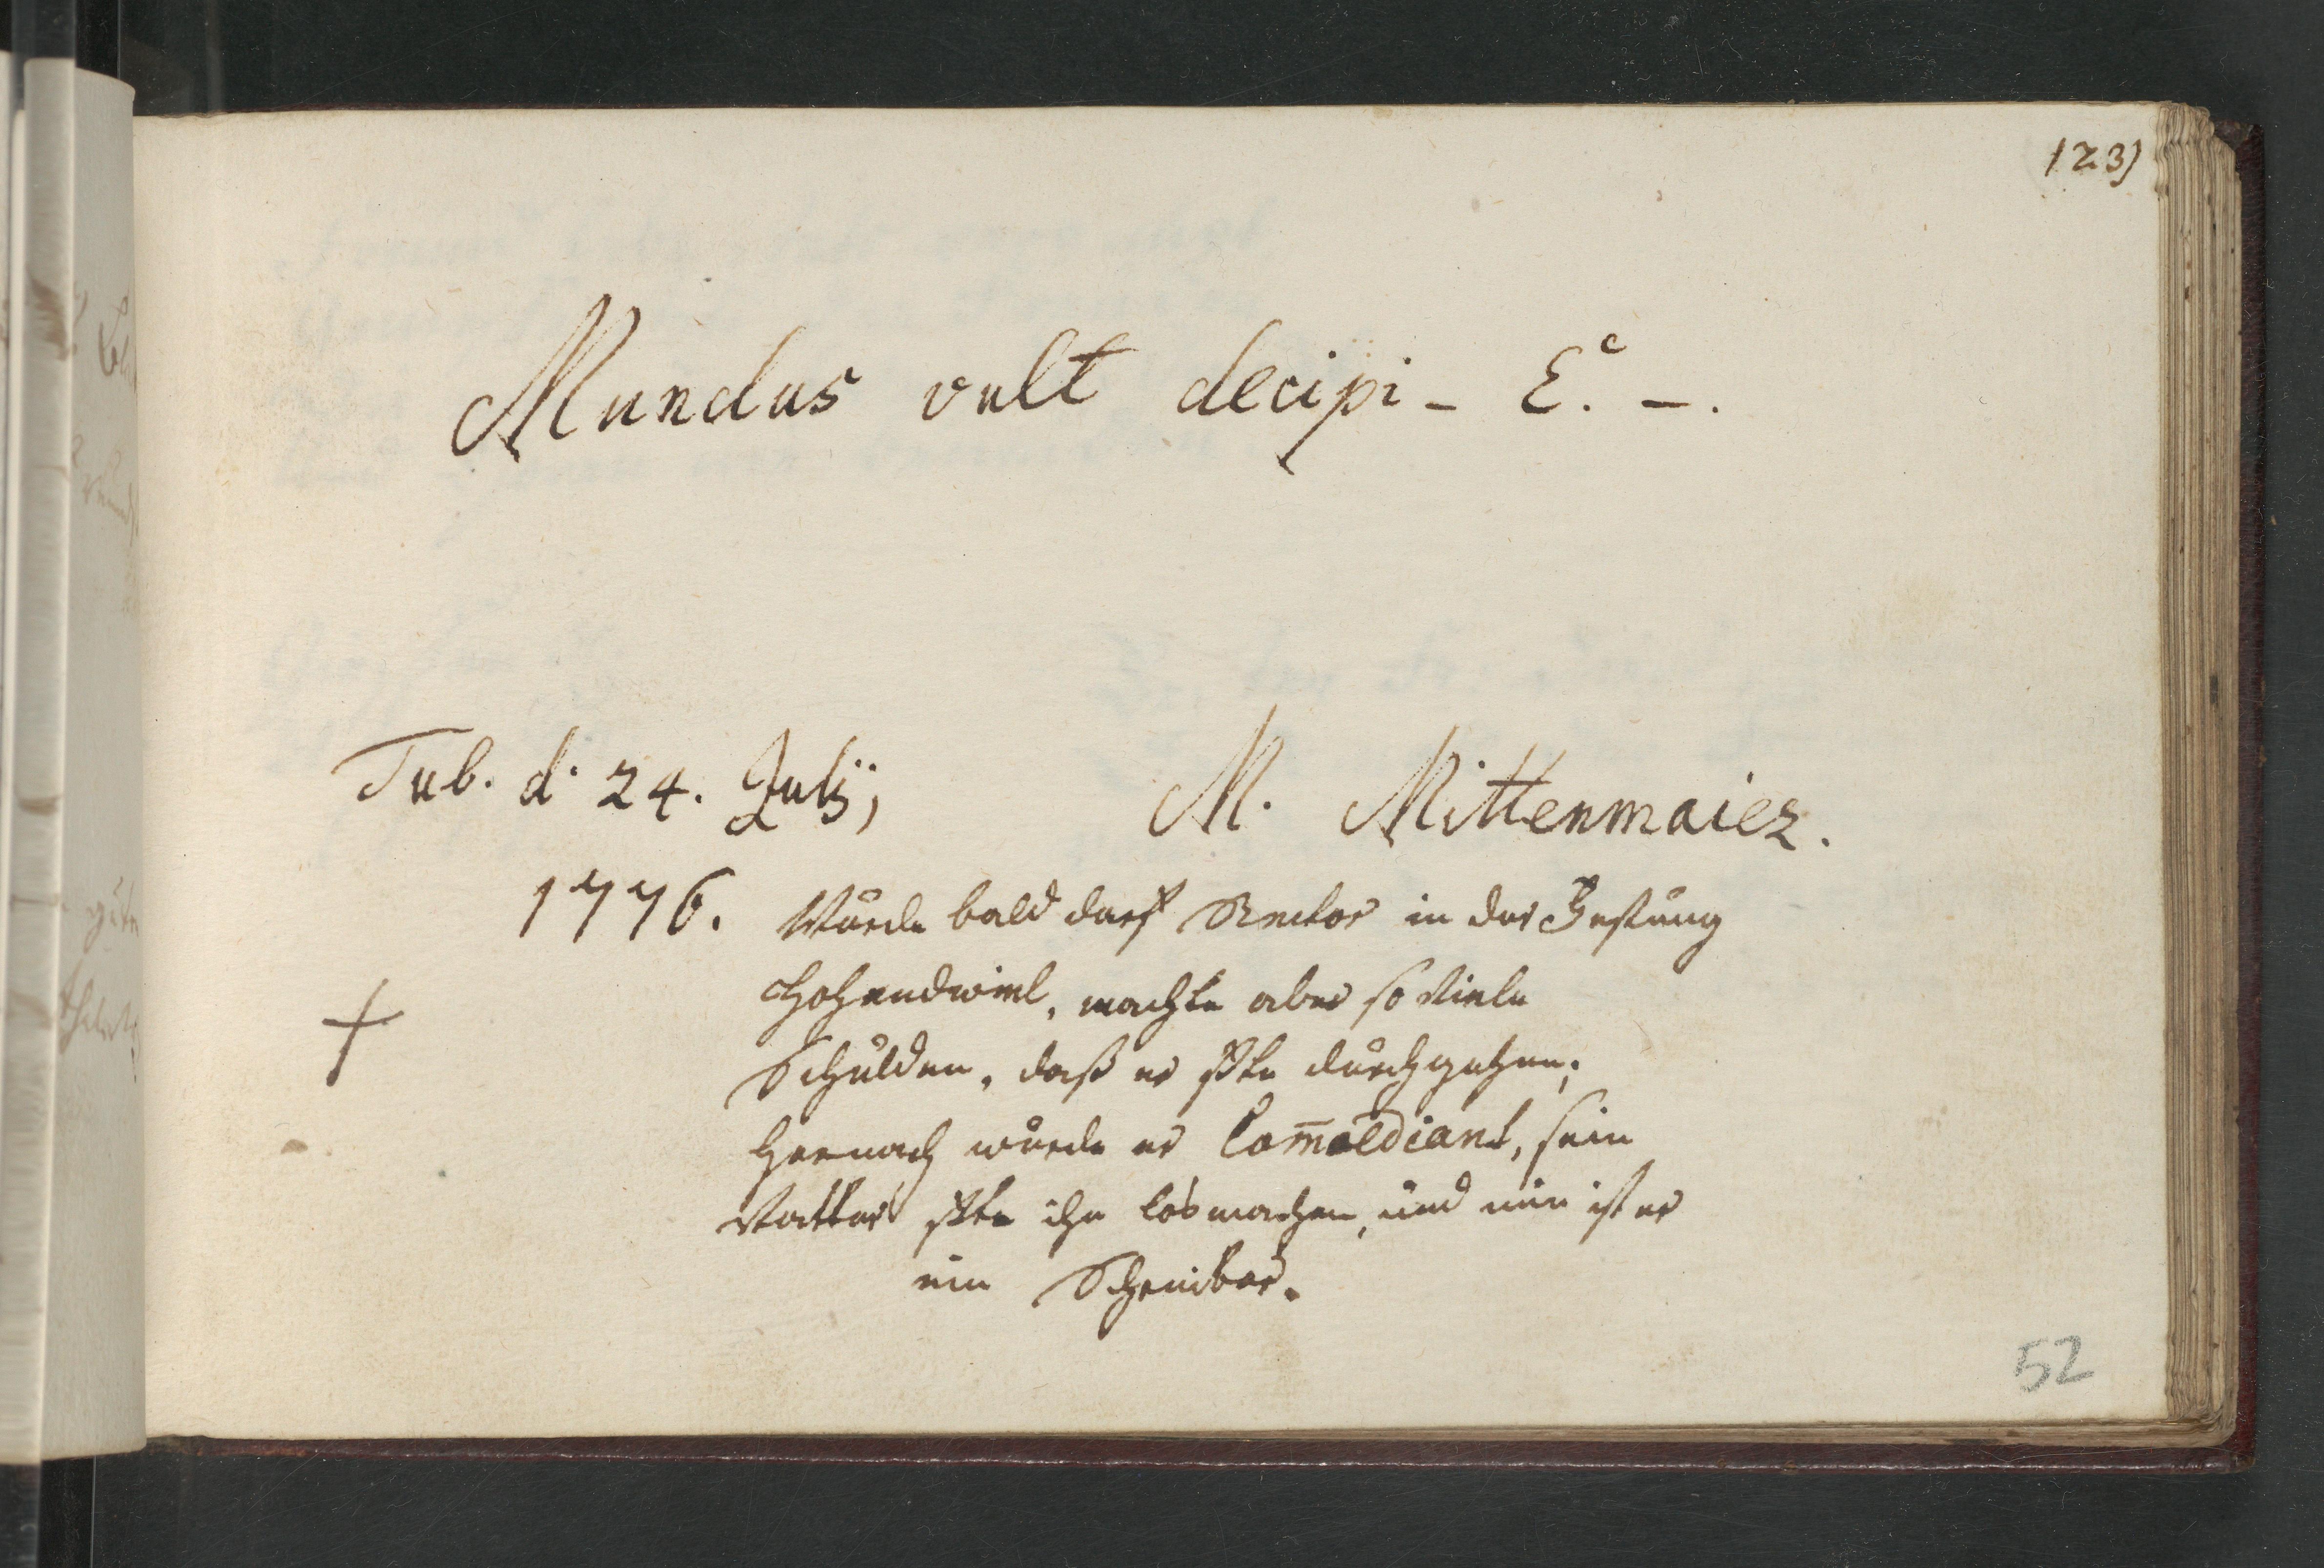 123)
Mundus vult decipi - Ec. -.
Tub. d. 24. Julij,
M. Mittenmaier.
1776.
Wurde bald darf Rector in der Festung
Hohendwiel, machte aber so viele
Schulden, daß er sste durchgehen;
hernach wurde er Com̄oediant, sein
Vatter sste ihn losmachen, und nun ist er
ein Schreiber.
52